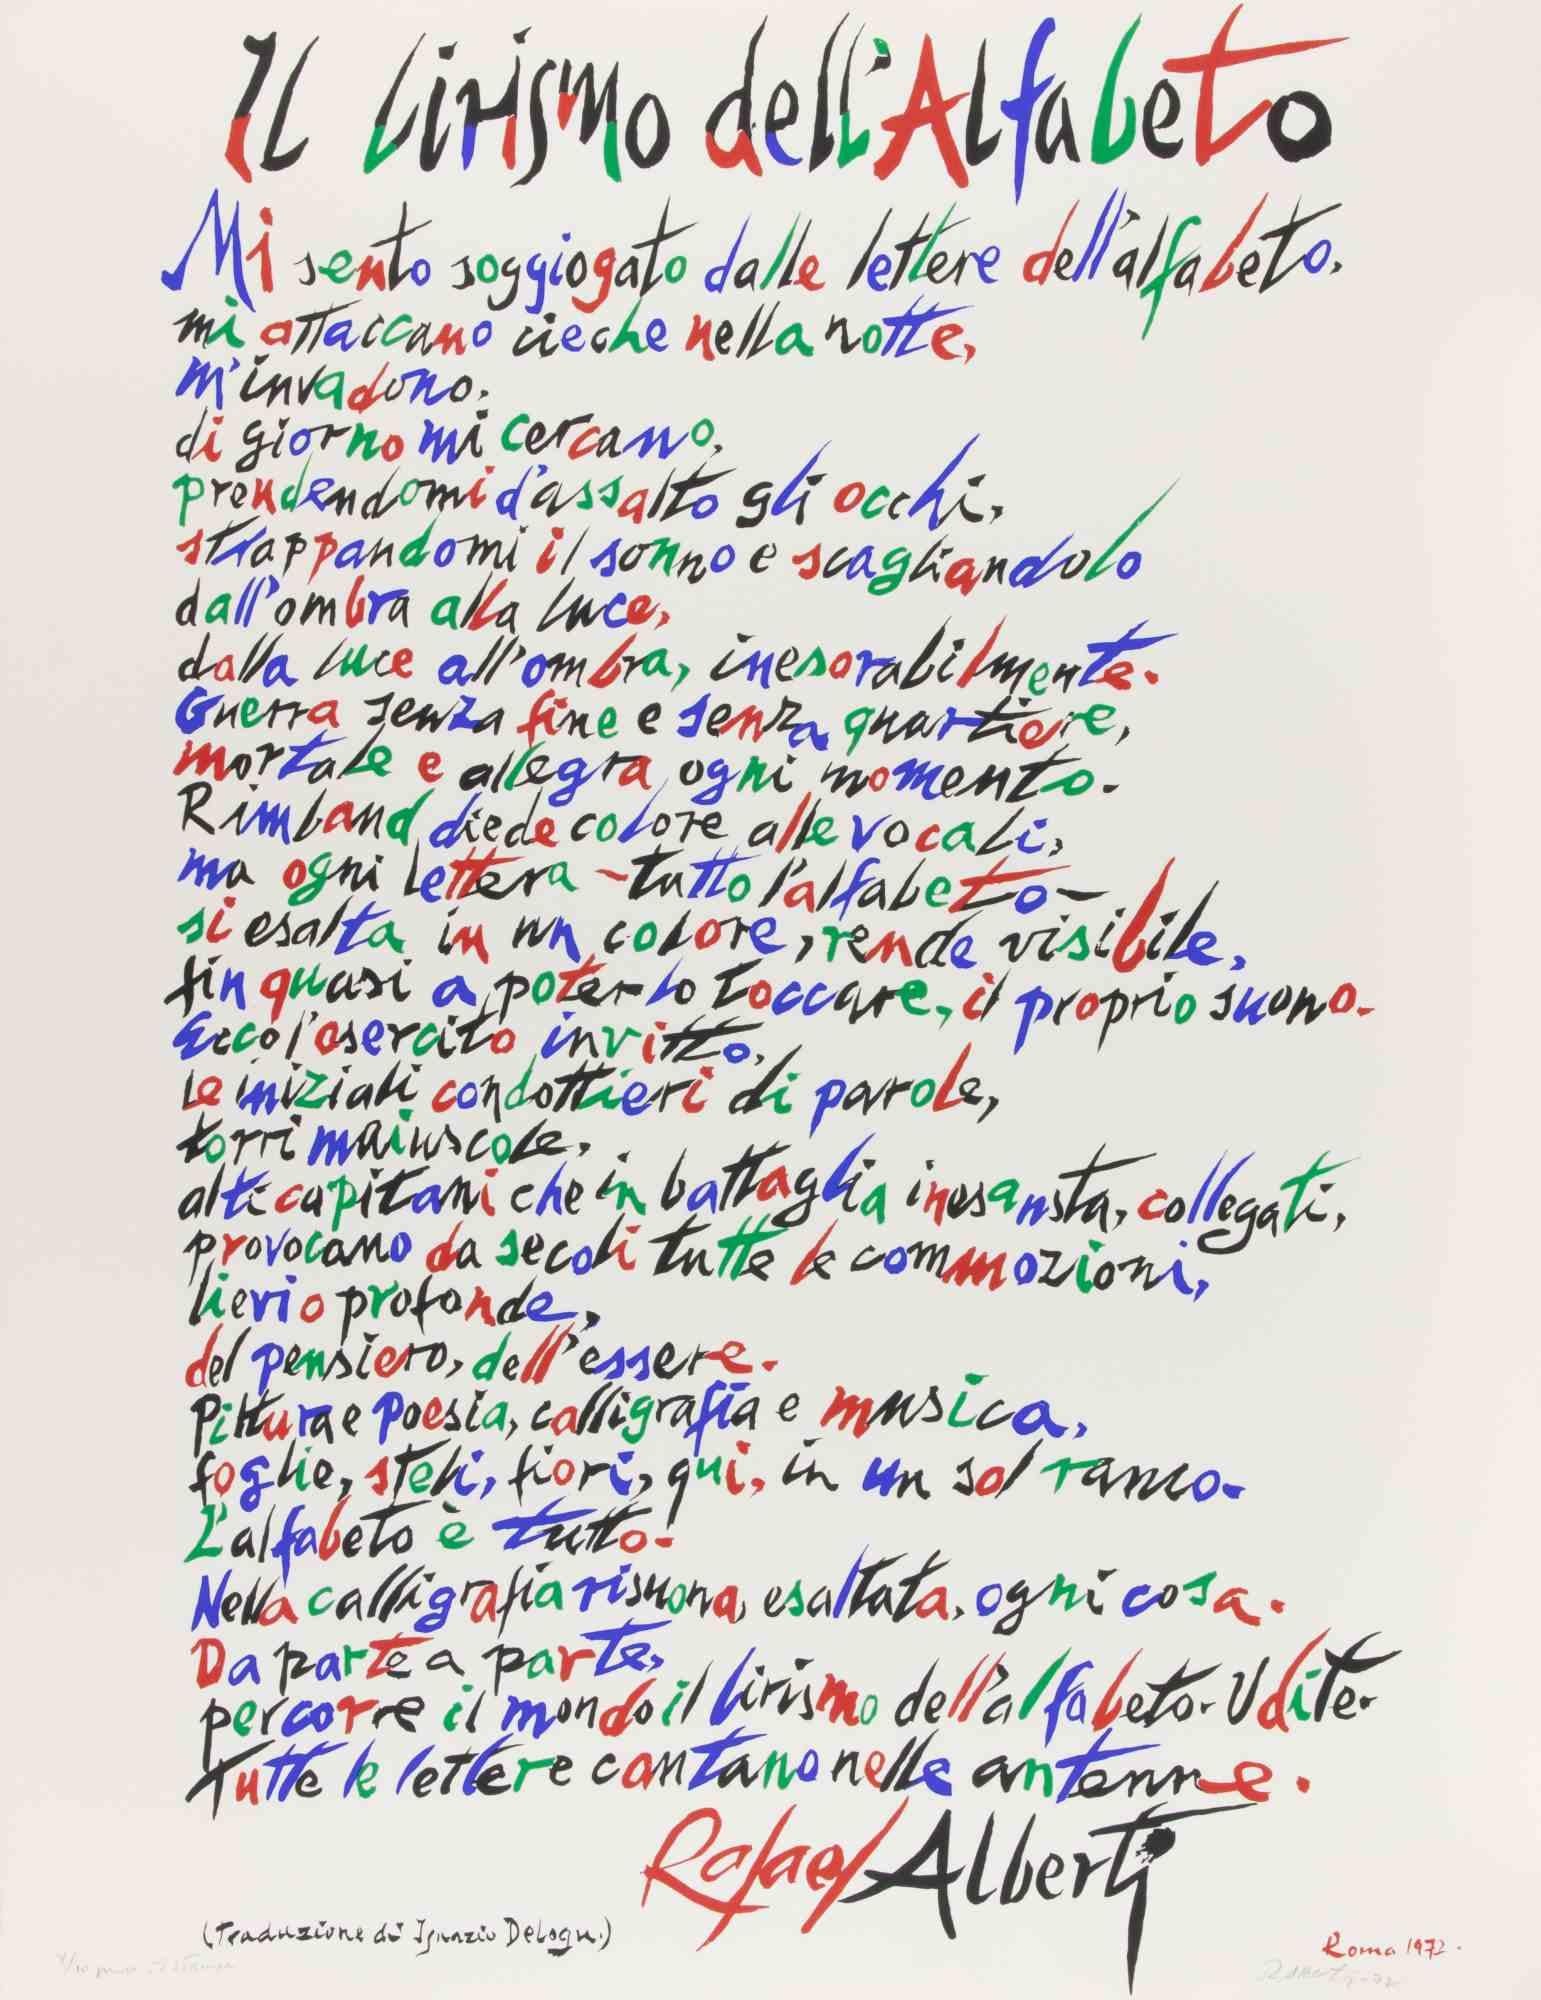 Il lirismo dell'Alfabeto
Mi sento soggiogato dalle lettere dell'alfabeto.
mi attaccano cieche nella notte,
m'invadono.
di giorno mi cercano,
prendendomi d'assalto gli occhi,
strappandomi il sonno e scagliandolo
dall'ombra alla luce,
dalla luce all'ombra, inesorabilmente.
Guerra senza fine e senza quartiere,
mortale e allegra ogni momento.
Rimbaud diede colore alle vocali,
ma ogni lettera - tutto l'alfabeto -
si esalta in un colore, rende visibile,
fin quasi a poterlo toccare, il proprio suono.
Ecco l'esercito invitto,
le iniziali condottieri di parole,
torri maiuscole,
alti capitani che in battaglia inesausta, collegati,
provocano da secoli tutte le commozioni,
lievi o profonde,
del pensiero, dell'essere.
Pittura e poesia, calligrafia e musica,
foglie, steli, fiori, qui, in un sol ramo.
L'alfabeto è tutto.
Nella calligrafia risuona, esaltata, ogni cosa.
Da parte a parte,
percorre il mondo il lirismo dell'alfabeto. Udite.
Tutte le lettere cantano nelle antenne.
Rafael Alberti
(Traduzione di Ignazio Delogu.)
Roma 1972.